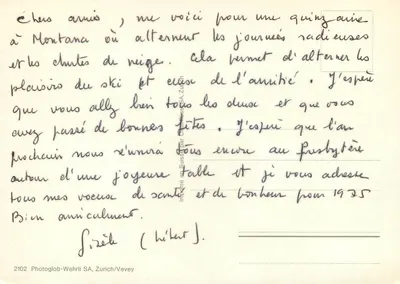 Chers amis, me voici pour une quinzaine
à Montana où alternent les journées radieuses
et les chutes de neige. Cela permet d'alterner les
plaisirs du ski et ceux de l'amitié. J'espère
que vous allez bien tous les deux et que vous
avez passé de bonnes fêtes. J'espère que l'an
prochain nous réunira tous encore au Presbytère
autour d'une joyeuse table et je vous adresse
tous mes voeux de santé et de bonheur pour 1975
Bien amicalement.
Gisèle (Hébert).
2102 Photoglob-Wehrli SA, Zurich/Vevey